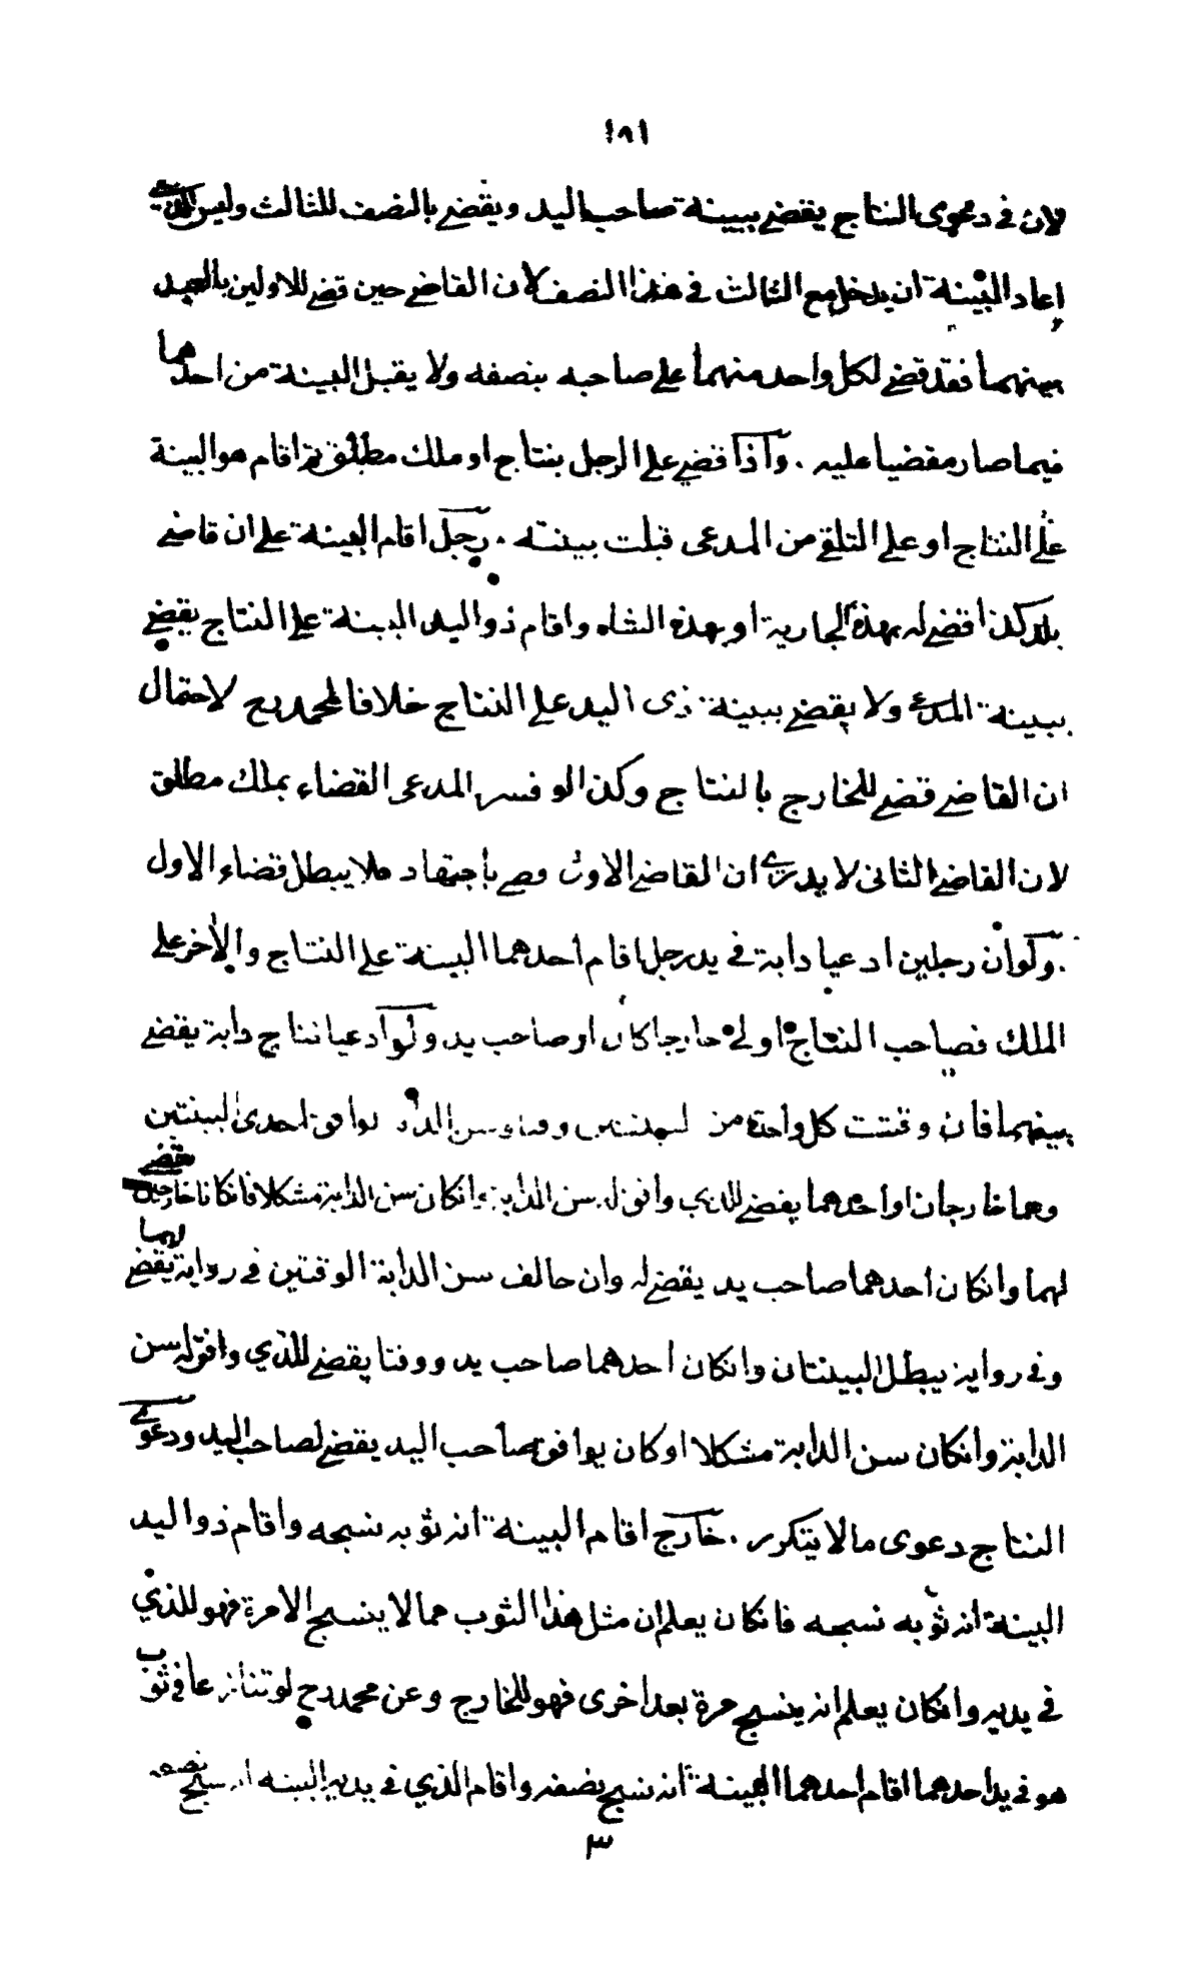 ١٨١
لان في دعوى النتاج يقضي ببينة صاحب اليد ويقضي بالنصف للثالث وليس للذي
اعاد البينة ان يدخل مع الثالث في هذا النصف لان القاضي حين قضي للاولين بالعبد
بينهما فقد قضي لكل واحد منهما علي صاحبه بنصفه ولا يقبل البينة من احدهما
فيما صار مقضيا عليه . واذا قضي علي الرجل بنتاج او ملك مطلق ثم اقام هو البينة
علي النتاج او علي التلقي من المدعى قبلت بينته . رجل اقام البينة علي ان قاضي
بلد كذا قضي له بهذه الجارية او بهذه الشاه واقام ذو اليد البينة علي النتاج يقضي
ببينة المدعي ولا يقضي ببينة ذى اليد علي النتاج خلافا لمحمد رح لاحتمال
ان القاضي قضي للخارج بالنتاج وكذا لو فسر المدعى القضاء بملك مطلق
لان القاضي الثانى لا يدري ان القاضي الاول قضي باجتهاد فلا يبطل قضاء الاول
. ولو ان رجلين ادعيا دابة في يد رجل اقام احدهما البينة علي النتاج والاخر علي
الملك فصاحب النتاج اولي خارجا كان او صاحب يد ولو ادعيا نتاج دابة يقضي
بينهما فان وقتت كل واحدة من البينتين ووافق سن الدابة احدى البينتين
وهما خارجان او احدهما يقضي للذي وافق له سن الدابة وانكان سن الدابة مشكلا فانكانا خارجين قضي
لهما وانكان احدهما صاحب يد يقضي له وان خالف سن الدابة الوقتين في رواية يقضي لهما
وفي رواية يبطل البينتان وانكان احدهما صاحب يد ووقتا يقضي للذي وافق له سن
الدابة وانكان سن الدابة مشكلا او كان يوافق صاحب اليد يقضي لصاحب اليد ودعوي
النتاج دعوى مالا يتكرر . خارج اقام البينة انه ثوبه نسجه واقام ذو اليد
البينة انه ثوبه نسجه فانكان يعلم ان مثل هذا الثوب مما لا ينسج الا مرة فهو للذي
في يديه وانكان يعلم انه ينسج مرة بعد اخرى فهو للخارج وعن محمد رح لو تنازعا في ثوب
هو في يد احدهما اقام احدهما البينة انه نسج نصفه واقام الذي في يديه البينه انه نسج نصفه
٣